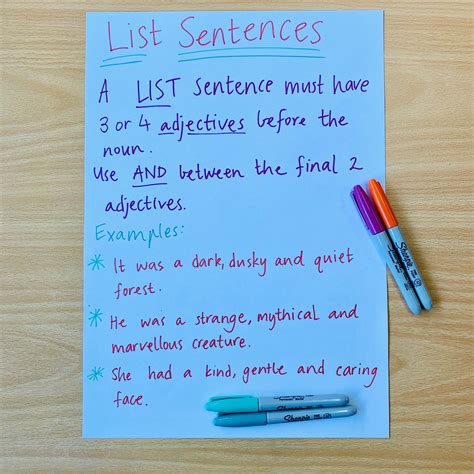 List Sentences
A LIST sentence must have
3 or 4 adjectives before the
noun.
Use AND between the final 2
adjectives.
Examples:
* It was a dark, dusky and quiet
forest.
* He was a strange, mythical and
marvellous creature.
* She had a kind, gentle and caring
face.
Sharpie
Sharpie
Sharpie